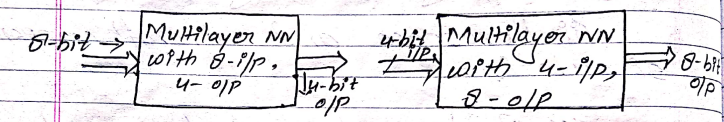 8-bit →
Multilayer NN
with 8-i/p,
4- o/p
↓4-bit
o/p
4-bit
i/p
Multilayer NN
with 4-i/p,
8-o/p
8-bit
o/p